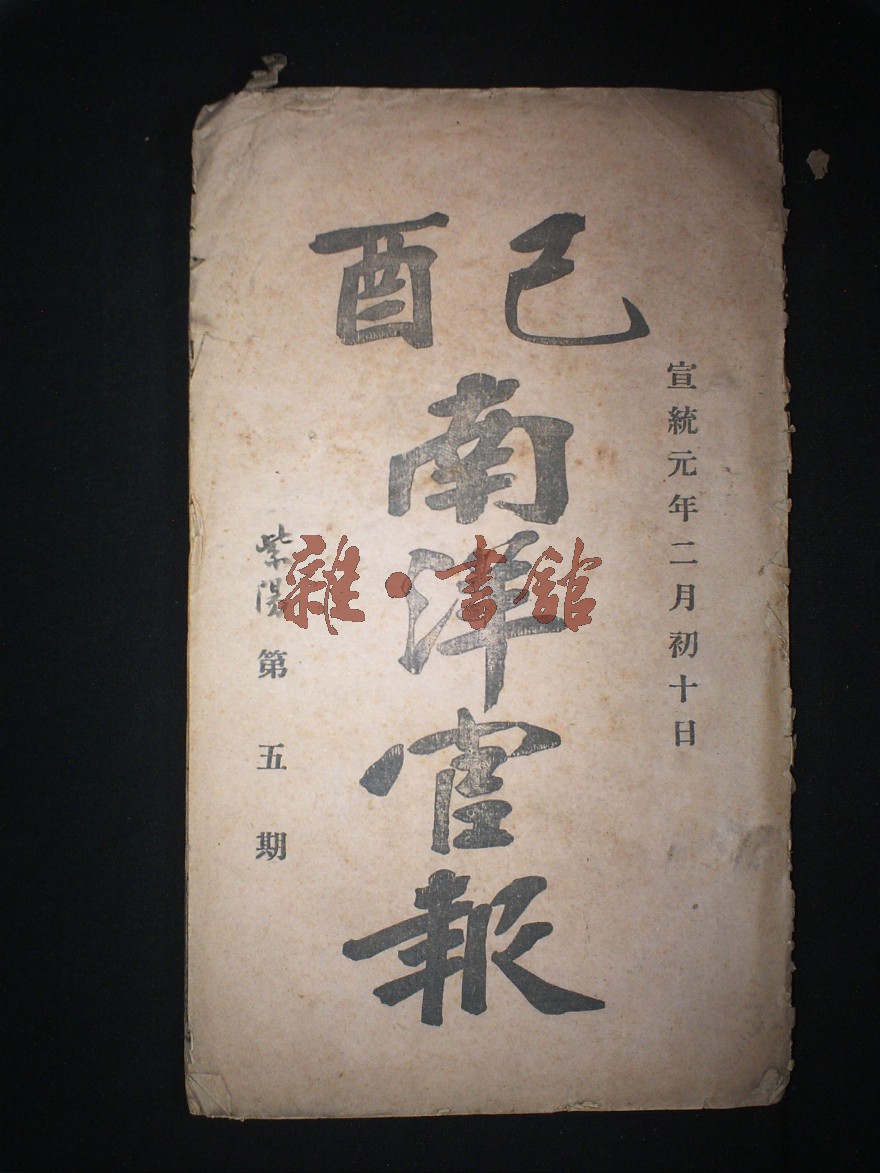 己酉
宣統元年二月初十日
南洋官報
紫陽
第五期
雜·書舘